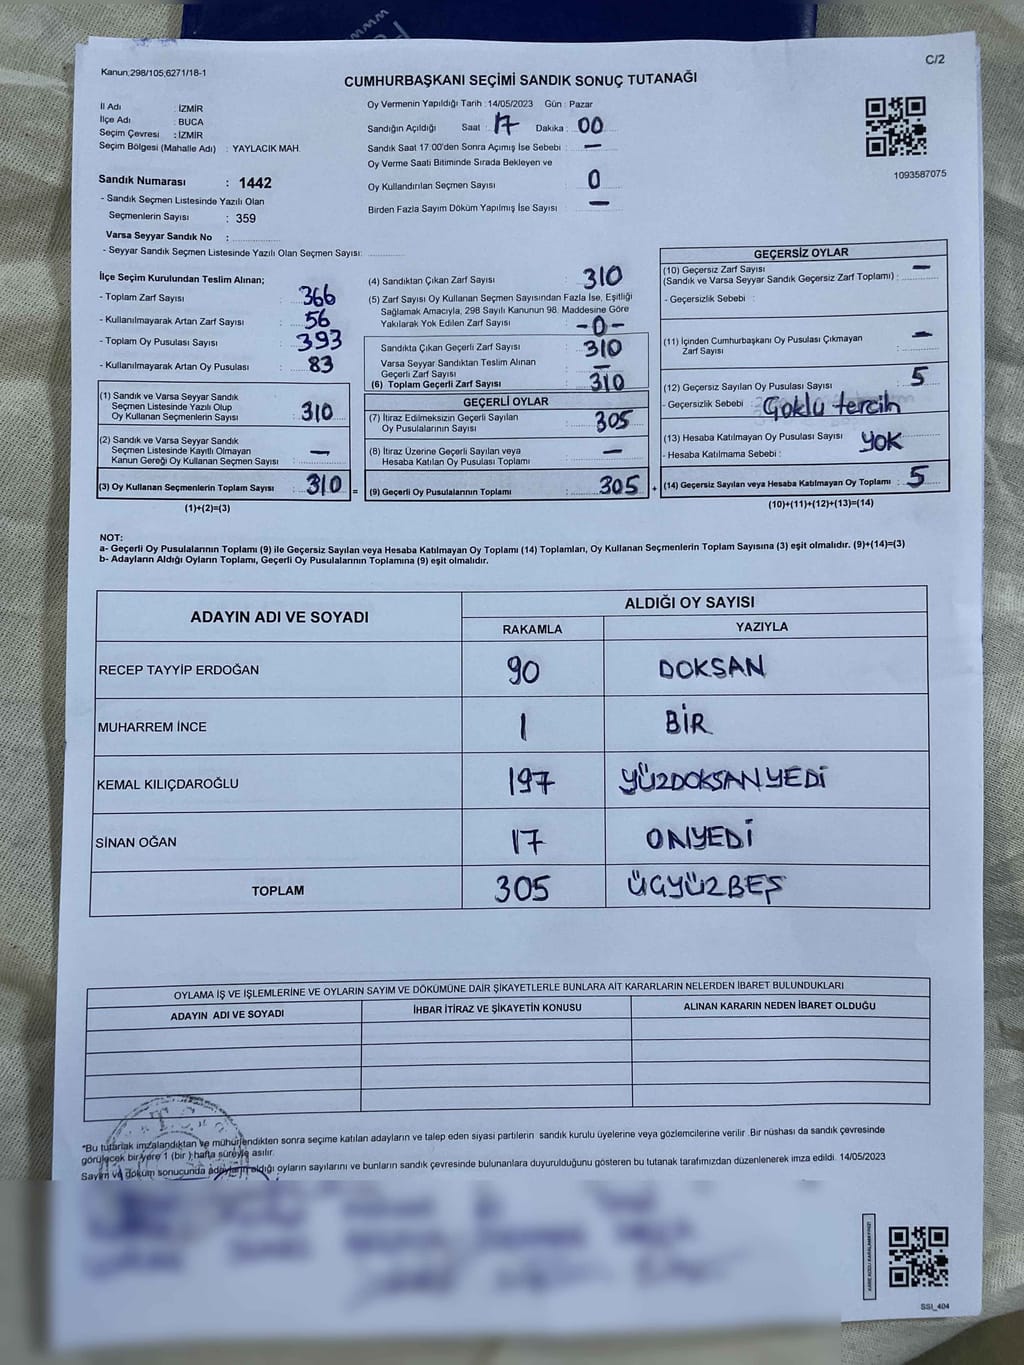 Kanun,298/105;6271/18-1
C/2
CUMHURBAŞKANI SEÇİMİ SANDIK SONUÇ TUTANAĞI
İl Adı : İZMİR
İlçe Adı : BUCA
Seçim Çevresi : İZMİR
Seçim Bölgesi (Mahalle Adı) : YAYLACIK MAH.
Sandık Numarası : 1442
- Sandık Seçmen Listesinde Yazılı Olan
Seçmenlerin Sayısı : 359
Varsa Seyyar Sandık No :
- Seyyar Sandık Seçmen Listesinde Yazılı Olan Seçmen Sayısı:
Oy Vermenin Yapıldığı Tarih : 14/05/2023 Gün : Pazar
Sandığın Açıldığı Saat : 17 Dakika : 00
Sandık Saat 17:00'den Sonra Açımış İse Sebebi : —
Oy Verme Saati Bitiminde Sırada Bekleyen ve
Oy Kullandırılan Seçmen Sayısı : 0
Birden Fazla Sayım Döküm Yapılmış İse Sayısı : —
1093587075
İlçe Seçim Kurulundan Teslim Alınan;
- Toplam Zarf Sayısı : 366
- Kullanılmayarak Artan Zarf Sayısı : 56
- Toplam Oy Pusulası Sayısı : 393
- Kullanılmayarak Artan Oy Pusulası : 83
(1) Sandık ve Varsa Seyyar Sandık
Seçmen Listesinde Yazılı Olup
Oy Kullanan Seçmenlerin Sayısı : 310
(2) Sandık ve Varsa Seyyar Sandık
Seçmen Listesinde Kayıtlı Olmayan
Kanun Gereği Oy Kullanan Seçmen Sayısı : —
(3) Oy Kullanan Seçmenlerin Toplam Sayısı : 310 =
(1)+(2)=(3)
(4) Sandıktan Çıkan Zarf Sayısı : 310
(5) Zarf Sayısı Oy Kullanan Seçmen Sayısından Fazla İse, Eşitliği
Sağlamak Amacıyla, 298 Sayılı Kanunun 98. Maddesine Göre
Yakılarak Yok Edilen Zarf Sayısı : -0-
Sandıkta Çıkan Geçerli Zarf Sayısı : 310
Varsa Seyyar Sandıktan Teslim Alınan
Geçerli Zarf Sayısı : —
(6) Toplam Geçerli Zarf Sayısı : 310
GEÇERLİ OYLAR
(7) İtiraz Edilmeksizin Geçerli Sayılan
Oy Pusulalarının Sayısı : 305
(8) İtiraz Üzerine Geçerli Sayılan veya
Hesaba Katılan Oy Pusulası Toplamı : —
(9) Geçerli Oy Pusulalarının Toplamı : 305 +
GEÇERSİZ OYLAR
(10) Geçersiz Zarf Sayısı
(Sandık ve Varsa Seyyar Sandık Geçersiz Zarf Toplamı) : —
- Geçersizlik Sebebi :
(11) İçinden Cumhurbaşkanı Oy Pusulası Çıkmayan
Zarf Sayısı : —
(12) Geçersiz Sayılan Oy Pusulası Sayısı : 5
- Geçersizlik Sebebi : Çoklu tercih
(13) Hesaba Katılmayan Oy Pusulası Sayısı : YOK
- Hesaba Katılmama Sebebi :
(14) Geçersiz Sayılan veya Hesaba Katılmayan Oy Toplamı : 5
(10)+(11)+(12)+(13)=(14)
NOT:
a- Geçerli Oy Pusulalarının Toplamı (9) ile Geçersiz Sayılan veya Hesaba Katılmayan Oy Toplamı (14) Toplamları, Oy Kullanan Seçmenlerin Toplam Sayısına (3) eşit olmalıdır. (9)+(14)=(3)
b- Adayların Aldığı Oyların Toplamı, Geçerli Oy Pusulalarının Toplamına (9) eşit olmalıdır.
ADAYIN ADI VE SOYADI
ALDIĞI OY SAYISI
RAKAMLA YAZIYLA
RECEP TAYYİP ERDOĞAN 90 DOKSAN
MUHARREM İNCE 1 BİR
KEMAL KILIÇDAROĞLU 197 YÜZDOKSANYEDİ
SİNAN OĞAN 17 ONYEDİ
TOPLAM 305 ÜÇYÜZBEŞ
OYLAMA İŞ VE İŞLEMLERİNE VE OYLARIN SAYIM VE DÖKÜMÜNE DAİR ŞİKAYETLERLE BUNLARA AİT KARARLARIN NELERDEN İBARET BULUNDUKLARI
ADAYIN ADI VE SOYADI İHBAR İTİRAZ VE ŞİKAYETİN KONUSU ALINAN KARARIN NEDEN İBARET OLDUĞU
*Bu tutanak imzalandıktan ve mühürlendikten sonra seçime katılan adayların ve talep eden siyasi partilerin sandık kurulu üyelerine veya gözlemcilerine verilir .Bir nüshası da sandık çevresinde
görülecek bir yere 1 (bir ) hafta süreyle asılır.
Sayım ve döküm sonucunda adayların aldığı oyların sayılarını ve bunların sandık çevresinde bulunanlara duyurulduğunu gösteren bu tutanak tarafımızdan düzenlenerek imza edildi. 14/05/2023
SSI_404